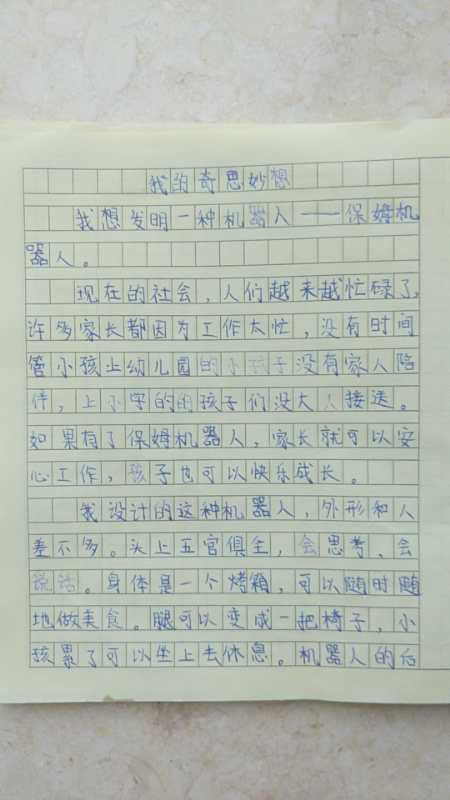 我的奇思妙想
我想发明一种机器人——保姆机
器人。
现在的社会，人们越来越忙碌了，
许多家长都因为工作太忙，没有时间
管小孩上幼儿园的小孩子没有家人陪
伴，上小学的的孩子们没大人接送。
如果有了保姆机器人，家长就可以安
心工作，孩子也可以快乐成长。
我设计的这种机器人，外形和人
差不多。头上五官俱全，会思考，会
说话。身体是一个烤箱，可以随时随
地做美食。腿可以变成一把椅子，小
孩累了可以坐上去休息。机器人的后